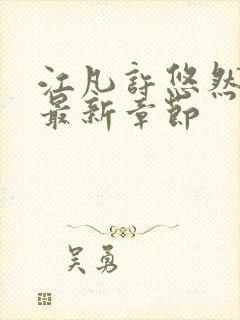 江凡許悠然
最新章節
吴勇